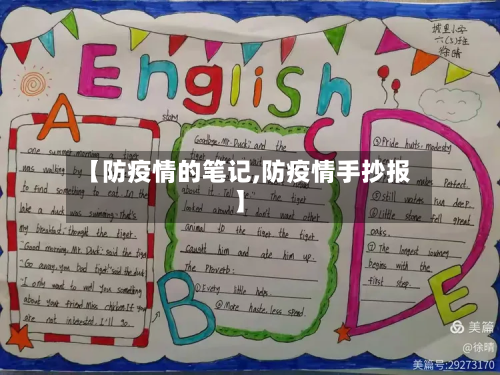 城里小学
六(3)班
徐晴
English
A
B
C
D
E
story
one summer morning a tiger
was walking by
to find something to eat. In the
lake a duck was swimming."That's
my breakfast" thought the tiger.
"Good morning, Mr. Duck" said the tiger
"Go away, you bad tiger" said the duck
"I only want to tell you something
about your friend Miss chicken. If you
are not interested, I'll go.
Goodbye, Mr. Duck" and the
about it. Tell
looked around
don't want other
animal to the tiger. the tiger
caught him and ate him up.
The Proverb:
①Every little helps
②More haste, less speed.
①Pride hurts, modesty
makes Perfect
③still waters run deep.
④Little stone fell great
oaks.
⑤The longest journey
begins with the
first step.
【防疫情的笔记,防疫情手抄报
】
美篇
@徐晴
美篇号:29273170